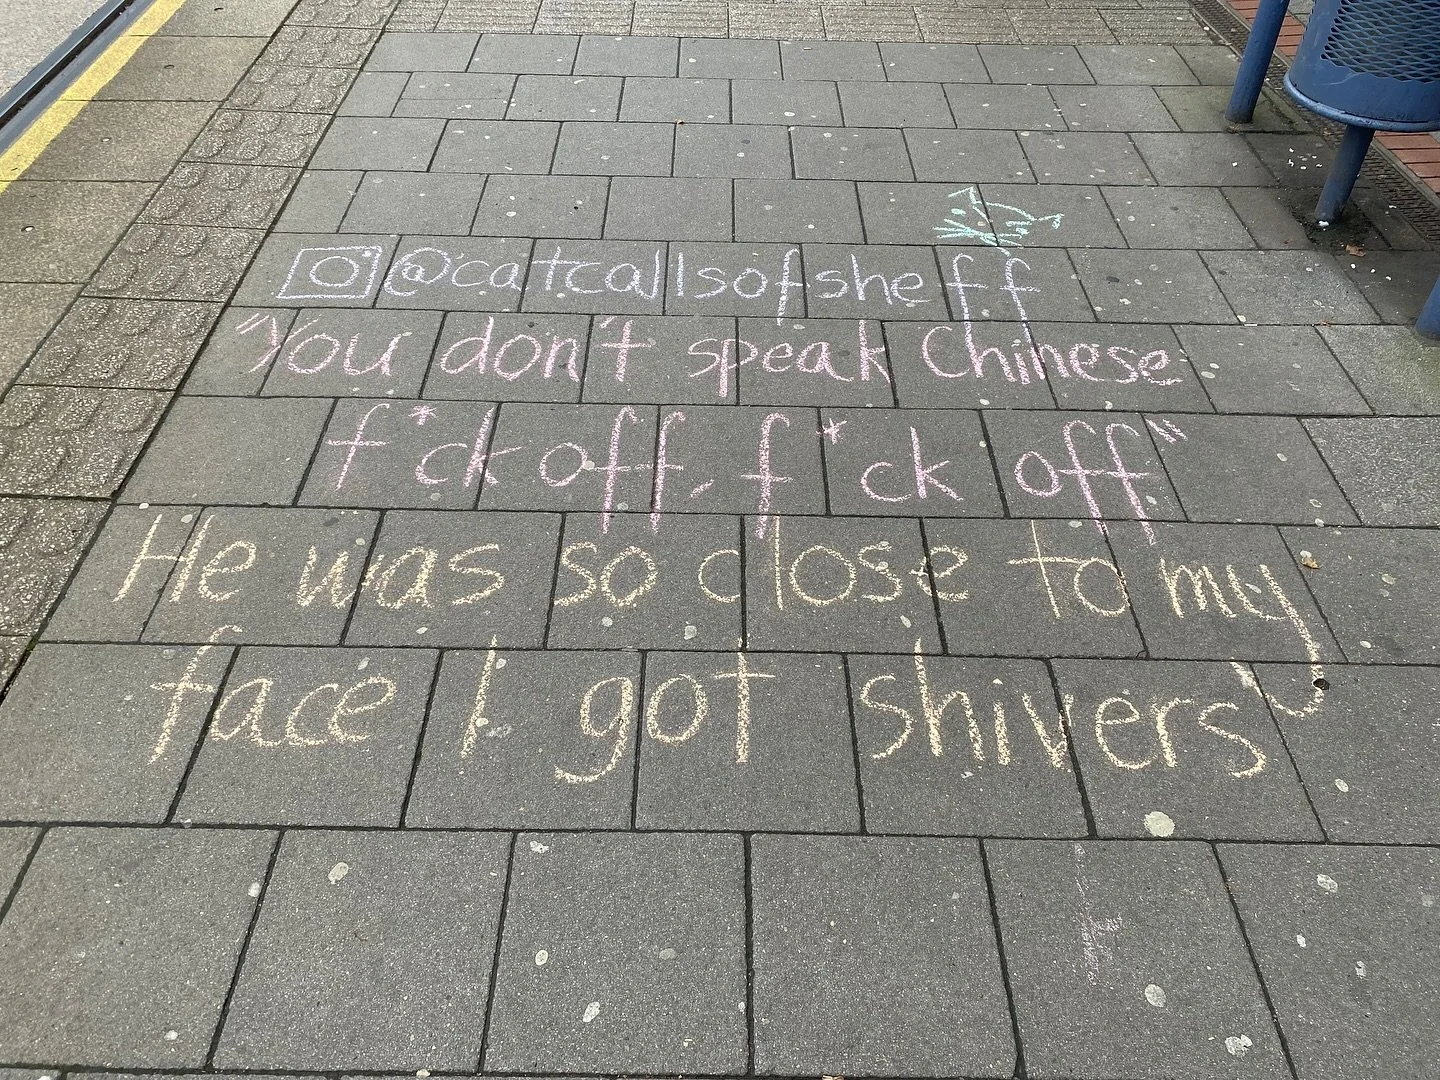 @catcallsofsheff
"You don't speak Chinese
f*ck off, f*ck off"
He was so close to my
face I got shivers